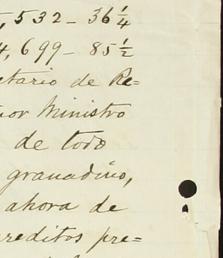 ,532 - 36 1/4
4,699 - 85 1/2
etario de Re=
or Ministro
de todo
granadino,
ahora de
reditos pre=